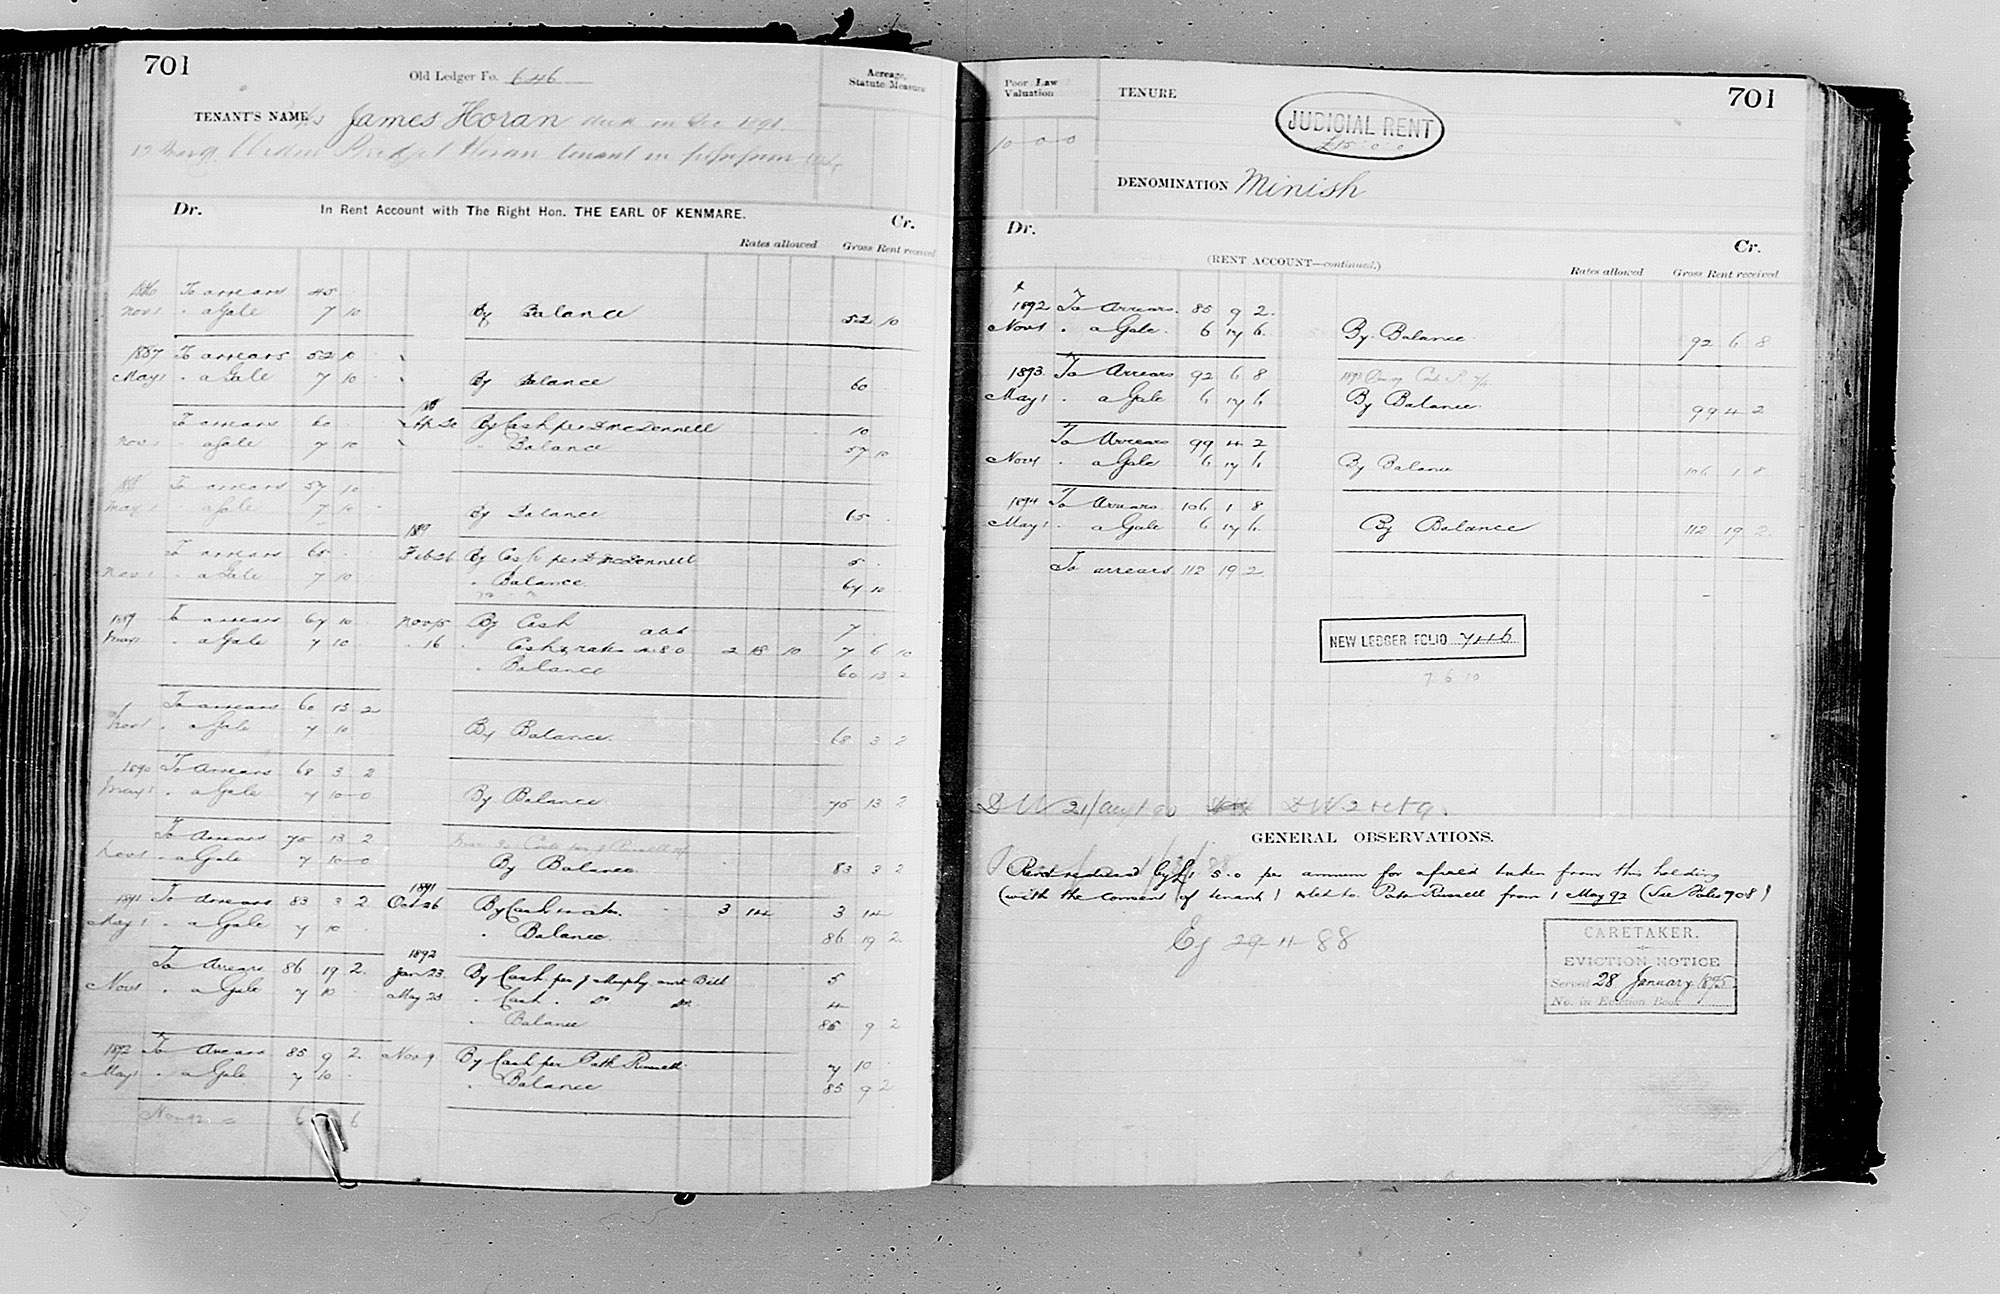 701
Old Ledger Fo. 646
Acreage, Statute Measure
TENANT'S NAME James Horan died in Dec 1891
Widow Bridget Horan tenant in
Dr. In Rent Account with The Right Hon. THE EARL OF KENMARE. Cr.
Rates allowed Gross Rent received
1886 To arrears 45
Nov 1 " a Gale 7 10 By Balance 52 10
1887 To arrears 52 10
May 1 " a Gale 7 10 By Balance 60
To arrears 60 By Cash per D McDonnell 10
Nov 1 " a Gale 7 10 " Balance 57 10
188 To arrears 57 10
May 1 " a Gale 7 10 By Balance 65
189
To arrears 65 Feb 26 By Cash per D McDonnell 5
Nov 1 " a Gale 7 10 " Balance 67 10
1889 To arrears 67 10 Nov 15 By Cash 7
May 1 " a Gale 7 10 " 16 " Cash & rates 2 18 10 7 6 10
" Balance 60 13 2
To arrears 60 13 2
Nov 1 " a Gale 7 10 By Balance 68 3 2
1890 To Arrears 68 3 2
May 1 " a Gale 7 10 0 By Balance 75 13 2
To Arrears 75 13 2
Nov 1 " a Gale 7 10 0 By Balance 83 3 2
1891
1891 To Arrears 83 3 2 Oct 26 By Cash rates 3 14 3 14
May 1 " a Gale 7 10 " Balance 86 19 2
1892
To Arrears 86 19 2 Jan 23 By Cash per J Murphy 5
Nov 1 " a Gale 7 10 May 23 " Cash " Do Do 4
" Balance 85 9 2
1892 To Arrears 85 9 2 Nov 9 By Cash per Path Russell 7 10
May 1 " a Gale 7 10 " Balance 85 9 2
Nov 92 6 6
Poor Law Valuation
10 0 0
TENURE
701
JUDICIAL RENT
£15.0.0
DENOMINATION Minish
Dr. Cr.
(RENT ACCOUNT—continued.)
Rates allowed Gross Rent received
1892 To Arrears 85 9 2
Nov 1 " a Gale 6 17 6 By Balance 92 6 8
1893 To Arrears 92 6 8
May 1 " a Gale 6 17 6 By Balance 99 4 2
To Arrears 99 4 2
Nov 1 " a Gale 6 17 6 By Balance 106 1 8
1894 To Arrears 106 1 8
May 1 " a Gale 6 17 6 By Balance 112 19 2
To arrears 112 19 2
NEW LEDGER FOLIO 7116
7 6 10
GENERAL OBSERVATIONS.
Rent reduced by £1 5.0 per annum for a field taken from this holding
(with the consent of tenant) & let to Patk Russell from 1 May 92 (See Folio 708)
Ej 29 11 88
CARETAKER.
EVICTION NOTICE
Served 28 January 1895
No. in Eviction Book